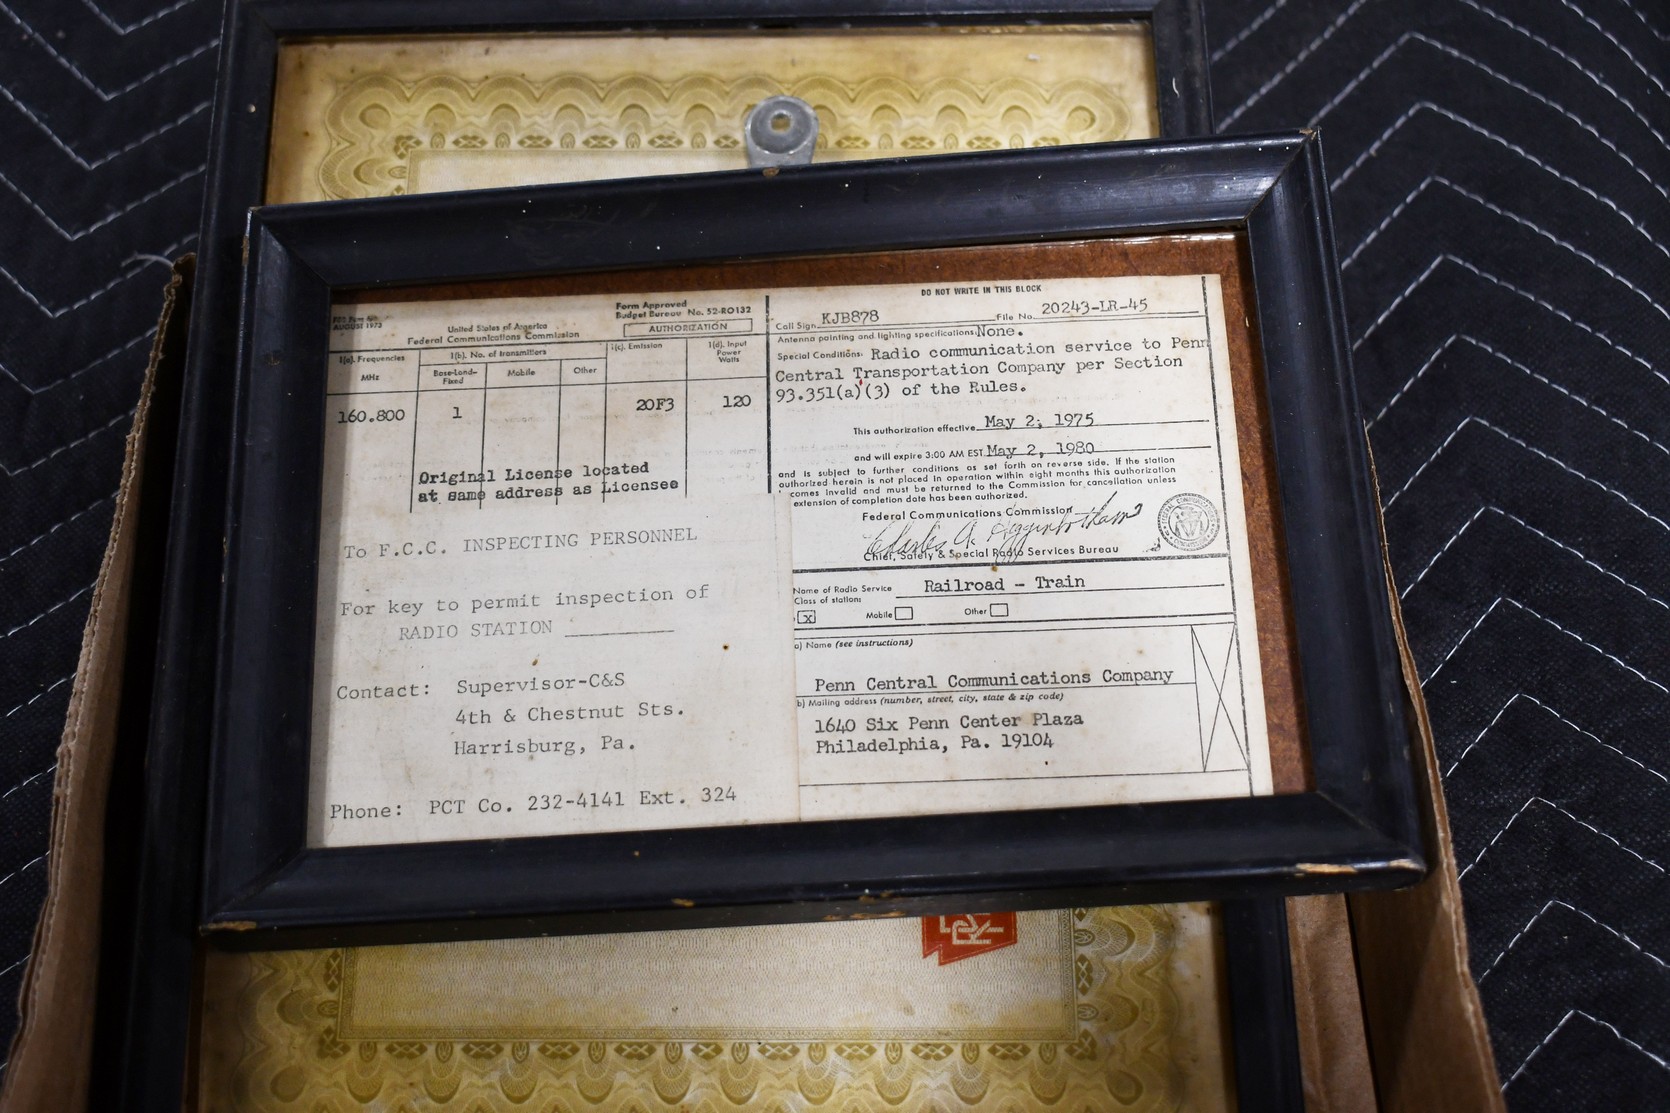 AUGUST 1973
United States of America
Federal Communications Commission
Form Approved
Budget Bureau No. 52-RO132
AUTHORIZATION
1(a). Frequencies
MHz
1(b). No. of transmitters
Base-Land-
Fixed
Mobile
Other
1(c). Emission
1(d). Input
Power
Watts
160.800 1 20F3 120
Original License located
at same address as Licensee
To F.C.C. INSPECTING PERSONNEL
For key to permit inspection of
RADIO STATION
Contact: Supervisor-C&S
4th & Chestnut Sts.
Harrisburg, Pa.
Phone: PCT Co. 232-4141 Ext. 324
DO NOT WRITE IN THIS BLOCK
Call Sign KJB878 File No. 20243-LR-45
Antenna painting and lighting specifications: None.
Special Conditions: Radio communication service to Penn
Central Transportation Company per Section
93.351(a)(3) of the Rules.
This authorization effective May 2, 1975
and will expire 3:00 AM EST May 2, 1980
and is subject to further conditions as set forth on reverse side. If the station
authorized herein is not placed in operation within eight months this authorization
comes invalid and must be returned to the Commission for cancellation unless
extension of completion date has been authorized.
Federal Communications Commission
Charles A. Higginbotham
Chief, Safety & Special Radio Services Bureau
Name of Radio Service Railroad - Train
Class of stations
x Mobile Other
a) Name (see instructions)
Penn Central Communications Company
b) Mailing address (number, street, city, state & zip code)
1640 Six Penn Center Plaza
Philadelphia, Pa. 19104